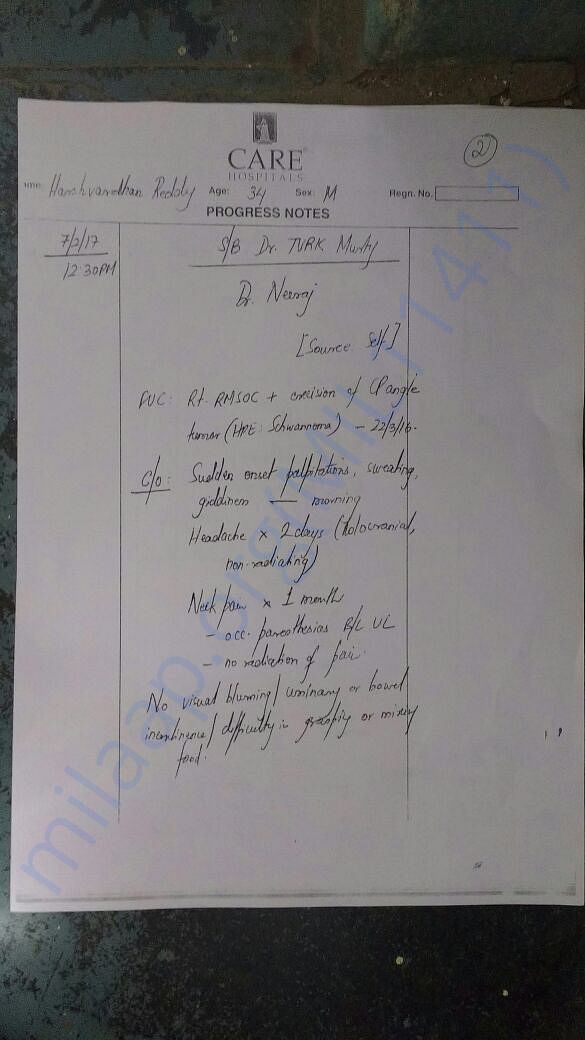 CARE
HOSPITALS
2
Name: Harshvardhan Reddy Age: 34 Sex: M Regn. No.
PROGRESS NOTES
7/2/17
12:30PM
S/B Dr. TVRK Murthy
Dr. Neeraj
[Source: Self]
Rt. RMSOC + excision of CP angle
tumor (HPE: Schwannoma) - 22/3/16.
C/o: Sudden onset palpitations, sweating,
giddiness — morning
Headache x 2 days (holocranial,
non-radiating)
Neck pain x 1 month
- occ. paraesthesias B/L UL
- no radiation of pain.
No visual blurring / urinary or bowel
incontinence / difficulty in grasping or mixing
food.
milaap.org(MIL11411)